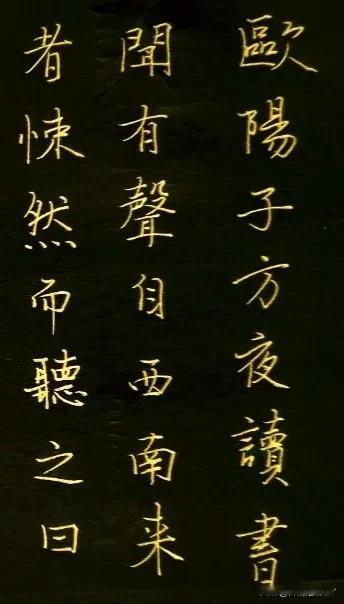 歐陽子方夜讀書
聞有聲自西南来
者悚然而聽之曰